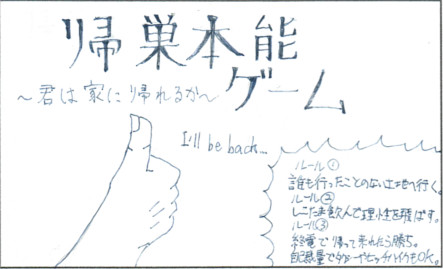 帰巣本能
ゲーム
～君は家に帰れるか～
I'll be back...
ルール①
誰も行ったことのない土地へ行く。
ルール②
しこたま飲んで理性を飛ばす。
ルール③
終電で帰って来れたら勝ち。
自己暴量でタクシーやヒッチハイクもOK。